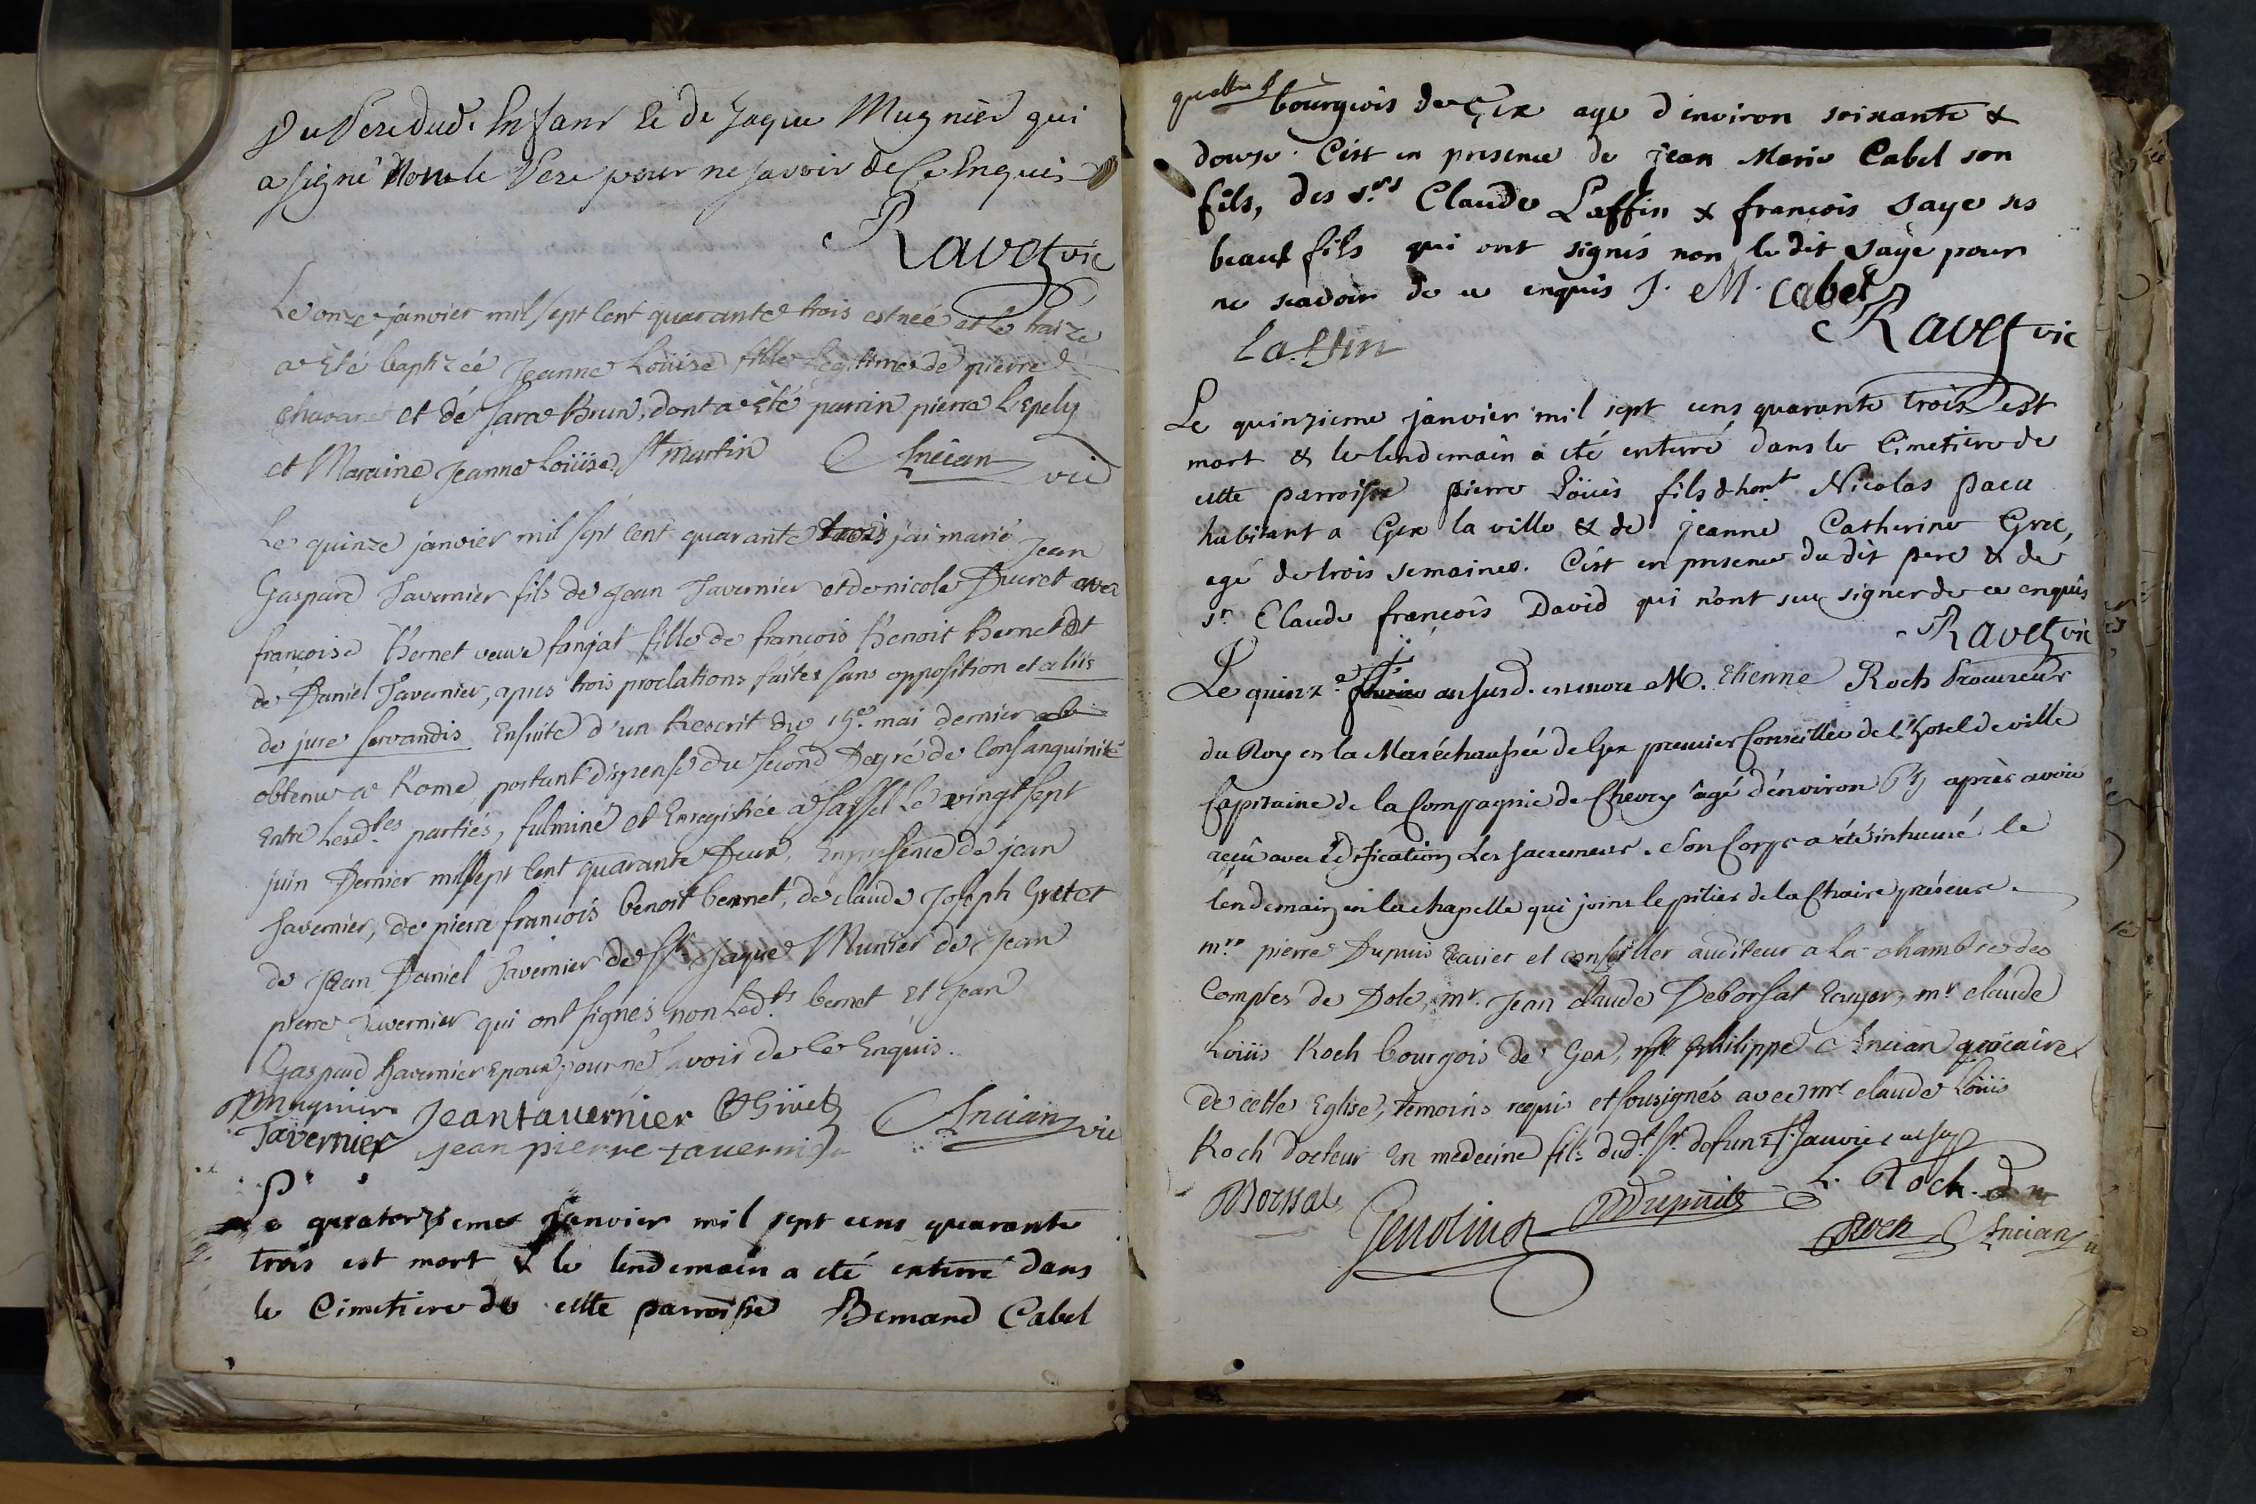 Du Pere dud. Enfant & de Jaque Mugnier qui
a signé Non le Pere pour ne savoir de Ce Enquis
Ravet vic
Le onze janvier mil sept cent quarante trois est née et le traize
a Eté baptizéé Jeanne Loüise fille Legitime de pierre
et dé Sara Brun, dont a Eté parrin pierre L'Epely
et Maraine Jeanne Loüise St martin Ancian vic
Le quinze janvier mil sept cent quarante trois j'ai marié Jean
Gaspard Tavernier fils de Jean Tavernier et de nicole Ducret avec
françoise Bernet veuve fanjat fille de françois Benoit Bernet et
de Daniel Tavernier, apres trois proclations faites sans opposition et aliis
de jure servandis Ensuite d'un Rescrit du 15e. mai dernier
obtenu a Rome, portant dispense du second Degré de Consanguinité
Entre Lesd.tes partiés, fulminé et Enregistrée a Sassel Le vingt sept
juin Dernier mil sept cent quarante Deux, En presence de jean
Tavernier, de pierre francois benoit bernet, de claude Joseph Gretet
de Jean Daniel Tavernier de Sr. Jaque Munier de Jean
pierre Tavernier qui ont signés non Led.ts bernet Et Jean
Gaspard Tavernier Epoux pour ne savoir de Ce Enquis.
Mugnier Jean tauernier Givet Ancian vic
Tavernier jean pierre tauernier
Le quatorzieme Janvier mil sept cens quarante
trois est mort & le lendemain a eté enterré dans
le Cimetiere de cette parroisse Bernard Cabel
bourgeois de Gex age d'environ soixante &
douse. C'est en presence de jean Marie Cabel son
fils, des s.rs Claude Laffin & francois Saye ses
beaux fils qui ont signés non le dit Saye pour
ne scavoir de ce enquis J. M. Cabel
Ravet vic
Laffin
Le quinzieme janvier mil sept cens quarante trois est
mort & le lendemain a eté enterré dans le Cimetiere de
cette parroisse pierre Loüis fils d'hon.te Nicolas pacu
habitant a Gex la ville & de jeanne Catherine Grec,
agé de trois semaines. C'est en presence du dit pere & de
sr Claude françois David qui n'ont sçu signer de ce enquis
Ravet vic
Le quinz.e an susd. est mort M. Etienne Roch Procureur
du Roy en la Maréchaussée de Gex premier Conseiller de l'Hotel de ville
Capitaine de la Compagnie de Chevry âgé d'environ après avoir
reçû avec Edification Les sacremens. Son Corps a été inhumé le
lendemain en la chapelle qui joint le pilier de la Chaire présence.
mre pierre Dupuis Ecuier et conseiller auditeur a La chambre des
Comptes de Dole, mr. Jean claude Deborsat Ecuyer, mr claude
Loüis Roch bourgois de Gex, philippe Ancian
de cette Eglise, temoins requis et sousignés avec mr claude Loüis
Roch docteur en medecine fils dud.t sr. defunt
Borssat Genolin Dupuits L. Roch.
Roch Ancian